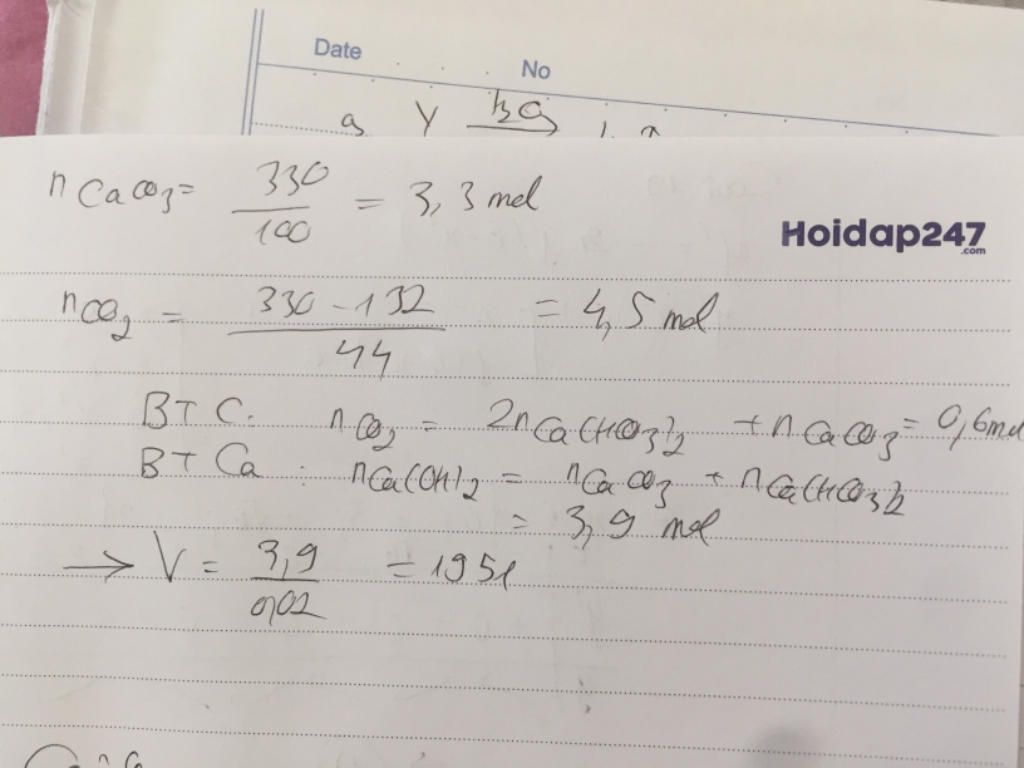 Date
No
Y
nCaCO3 = 330/100 = 3,3 mol
Hoidap247
.com
nCO2 = 330 - 132/44 = 4,5 mol
BT C: nCO2 = 2nCa(HCO3)2 + nCaCO3 = 0,6 mol
BT Ca: nCa(OH)2 = nCaCO3 + nCa(HCO3)2
= 3,9 mol
→ V = 3,9/0,02 = 195l